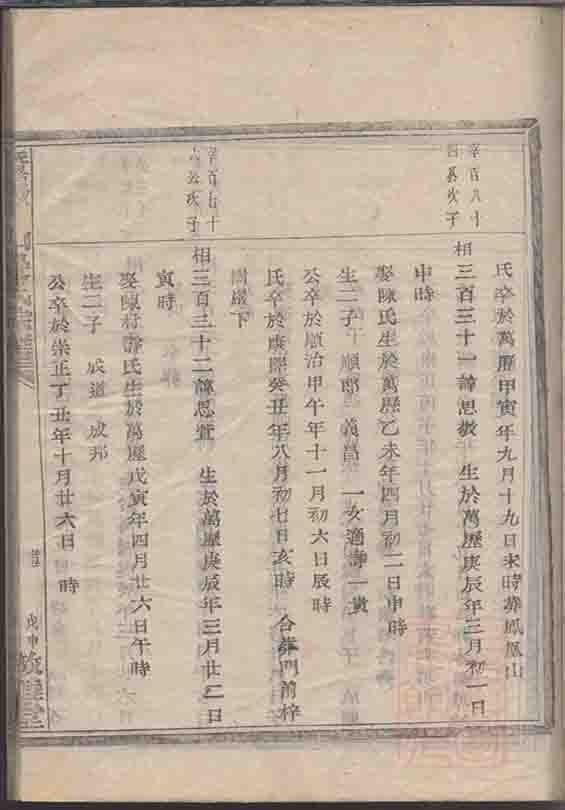 氏卒於萬歷甲寅年九月十九日未時葬鳳凰山
辛百八十
四公次子
相三百三十一諱思敬　生於萬歷庚辰年三月初一日
申時
娶陳氏生於萬歷乙未年四月初二日申時
生二子　順郎　義昌　一女適壽一貢
公卒於順治甲午年十一月初六日辰時
氏卒於康熙癸丑年八月初七日亥時　合葬門前梓
樹嚴下
辛百七十
公次子
相三百三十二諱思萱　生於萬歷庚辰年三月廿二日
寅時
娶陳村許氏生於萬歷戊寅年四月廿六日午時
生二子　成道　成邦
公卒於崇正丁丑年十月廿六日　時
戊申